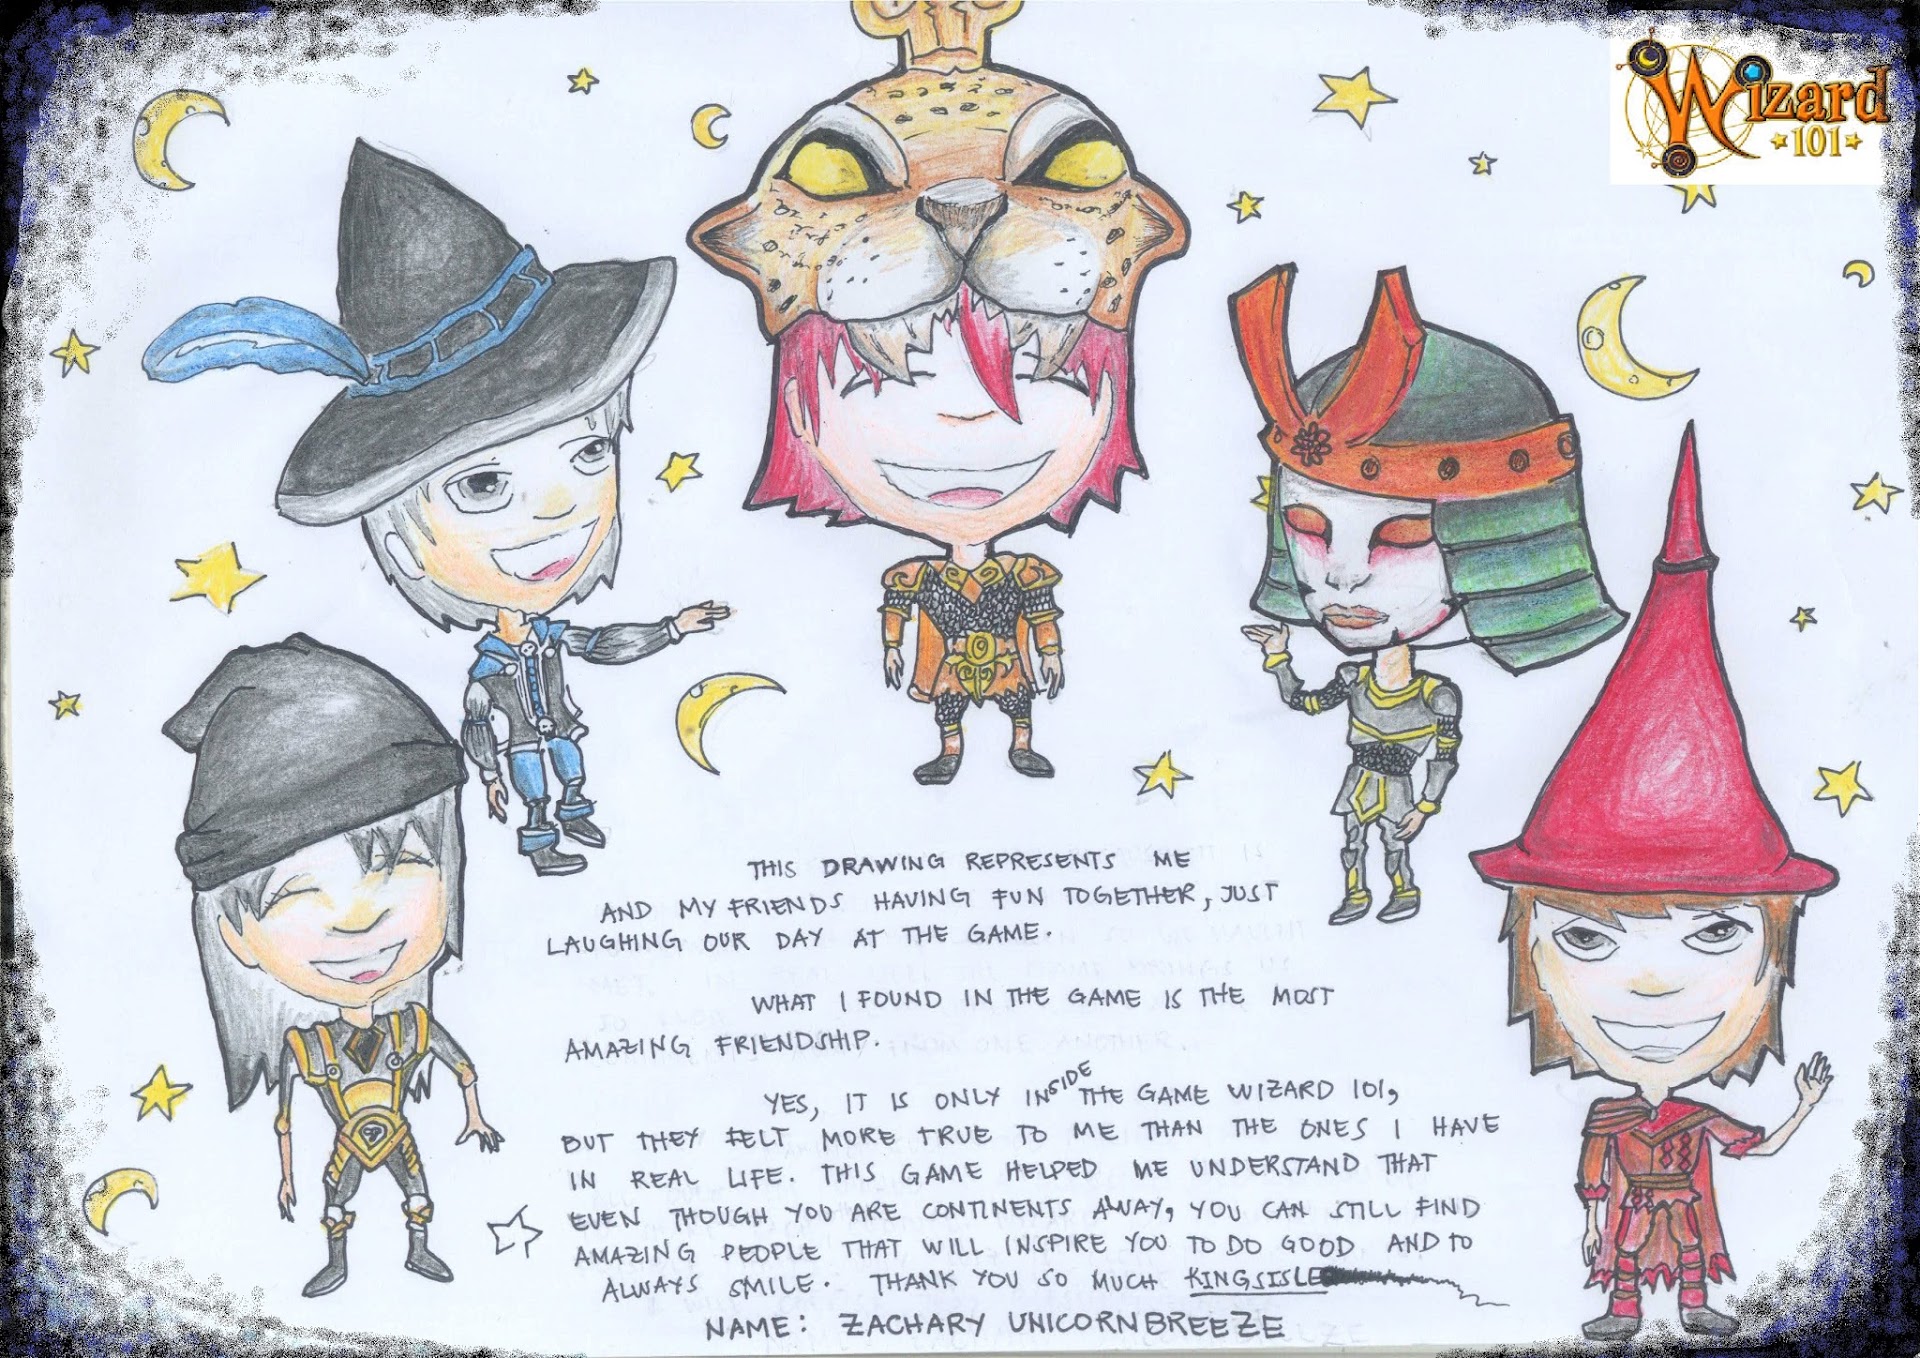 Wizard
101
THIS DRAWING REPRESENTS ME
AND MY FRIENDS HAVING FUN TOGETHER, JUST
LAUGHING OUR DAY AT THE GAME.
WHAT I FOUND IN THE GAME IS THE MOST
AMAZING FRIENDSHIP.
YES, IT IS ONLY INSIDE THE GAME WIZARD 101,
BUT THEY FELT MORE TRUE TO ME THAN THE ONES I HAVE
IN REAL LIFE. THIS GAME HELPED ME UNDERSTAND THAT
EVEN THOUGH YOU ARE CONTINENTS AWAY, YOU CAN STILL FIND
AMAZING PEOPLE THAT WILL INSPIRE YOU TO DO GOOD AND TO
ALWAYS SMILE. THANK YOU SO MUCH KINGSISLE
NAME: ZACHARY UNICORNBREEZE